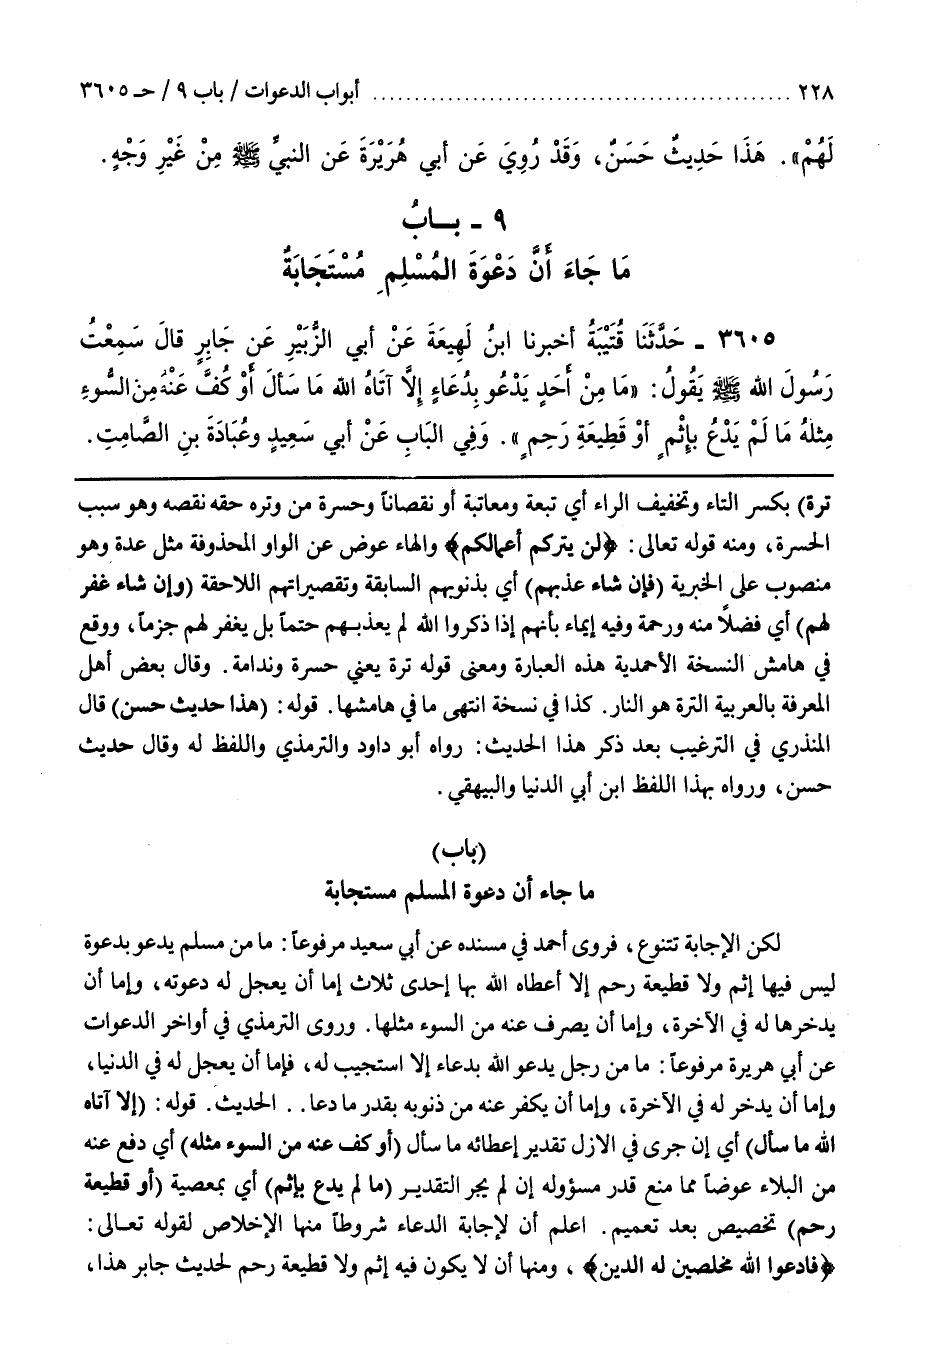 ٢٢٨ ................................................ أبواب الدعوات / باب ٩ / حـ ٣٦٠٥
لَهُمْ». هَذَا حَدِيثٌ حَسَنٌ، وَقَدْ رُوِيَ عَن أبي هُرَيْرَةَ عَن النبيِّ ﷺ مِنْ غَيْرِ وَجْهٍ.
٩ - بــابُ
مَا جَاءَ أَنَّ دَعْوَةَ المُسْلِمِ مُسْتَجَابَةٌ
٣٦٠٥ - حَدَّثَنَا قُتَيْبَةُ أخبرنا ابنُ لَهِيعَةَ عَنْ أبي الزُّبَيْرِ عَن جَابِرٍ قالَ سَمِعْتُ
رَسُولَ الله ﷺ يَقُولُ: «مَا مِنْ أَحَدٍ يَدْعُو بِدُعَاءٍ إِلَّا آتَاهُ الله مَا سَأَلَ أَوْ كُفَّ عَنْهُ مِنَ السُّوءِ
مِثلهُ مَا لَمْ يَدْعُ بإِثْمٍ أوْ قَطِيعَةِ رَحِمٍ». وَفِي البَابِ عَنْ أبي سَعِيدٍ وعُبَادَةَ بنِ الصَّامِتِ.
ترة) بكسر التاء وتخفيف الراء أي تبعة ومعاتبة أو نقصاناً وحسرة من وتره حقه نقصه وهو سبب
الحسرة، ومنه قوله تعالى: ﴿لن يتركم أعمالكم﴾ والهاء عوض عن الواو المحذوفة مثل عدة وهو
منصوب على الخبرية (فإن شاء عذبهم) أي بذنوبهم السابقة وتقصيراتهم اللاحقة (وإن شاء غفر
لهم) أي فضلاً منه ورحمة وفيه إيماء بأنهم إذا ذكروا الله لم يعذبـهم حتماً بل يغفر لهم جزماً، ووقع
في هامش النسخة الأحمدية هذه العبارة ومعنى قوله ترة يعني حسرة وندامة. وقال بعض أهل
المعرفة بالعربية الترة هو النار. كذا في نسخة انتهى ما في هامشها. قوله: (هذا حديث حسن) قال
المنذري في الترغيب بعد ذكر هذا الحديث: رواه أبو داود والترمذي واللفظ له وقال حديث
حسن، ورواه بهذا اللفظ ابن أبي الدنيا والبيهقي.
(باب)
ما جاء أن دعوة المسلم مستجابة
لكن الإجابة تتنوع، فروى أحمد في مسنده عن أبي سعيد مرفوعاً: ما من مسلم يدعو بدعوة
ليس فيها إثم ولا قطيعة رحم إلا أعطاه الله بها إحدى ثلاث إما أن يعجل له دعوته، وإما أن
يدخرها له في الآخرة، وإما أن يصرف عنه من السوء مثلها. وروى الترمذي في أواخر الدعوات
عن أبي هريرة مرفوعاً: ما من رجل يدعو الله بدعاء إلا استجيب له، فإما أن يعجل له في الدنيا،
وإما أن يدخر له في الآخرة، وإما أن يكفر عنه من ذنوبه بقدر ما دعا.. الحديث. قوله: (إلا آتاه
الله ما سأل) أي إن جرى في الازل تقدير إعطائه ما سأل (أو كف عنه من السوء مثله) أي دفع عنه
من البلاء عوضاً مما منع قدر مسؤوله إن لم يجر التقديـر (ما لم يدع بإثم) أي بمعصية (أو قطيعة
رحم) تخصيص بعد تعميم. اعلم أن لإجابة الدعاء شروطاً منها الإخلاص لقوله تعـالى:
﴿فادعوا الله مخلصين له الدين﴾، ومنها أن لا يكون فيه إثم ولا قطيعة رحم لحديث جابر هذا،